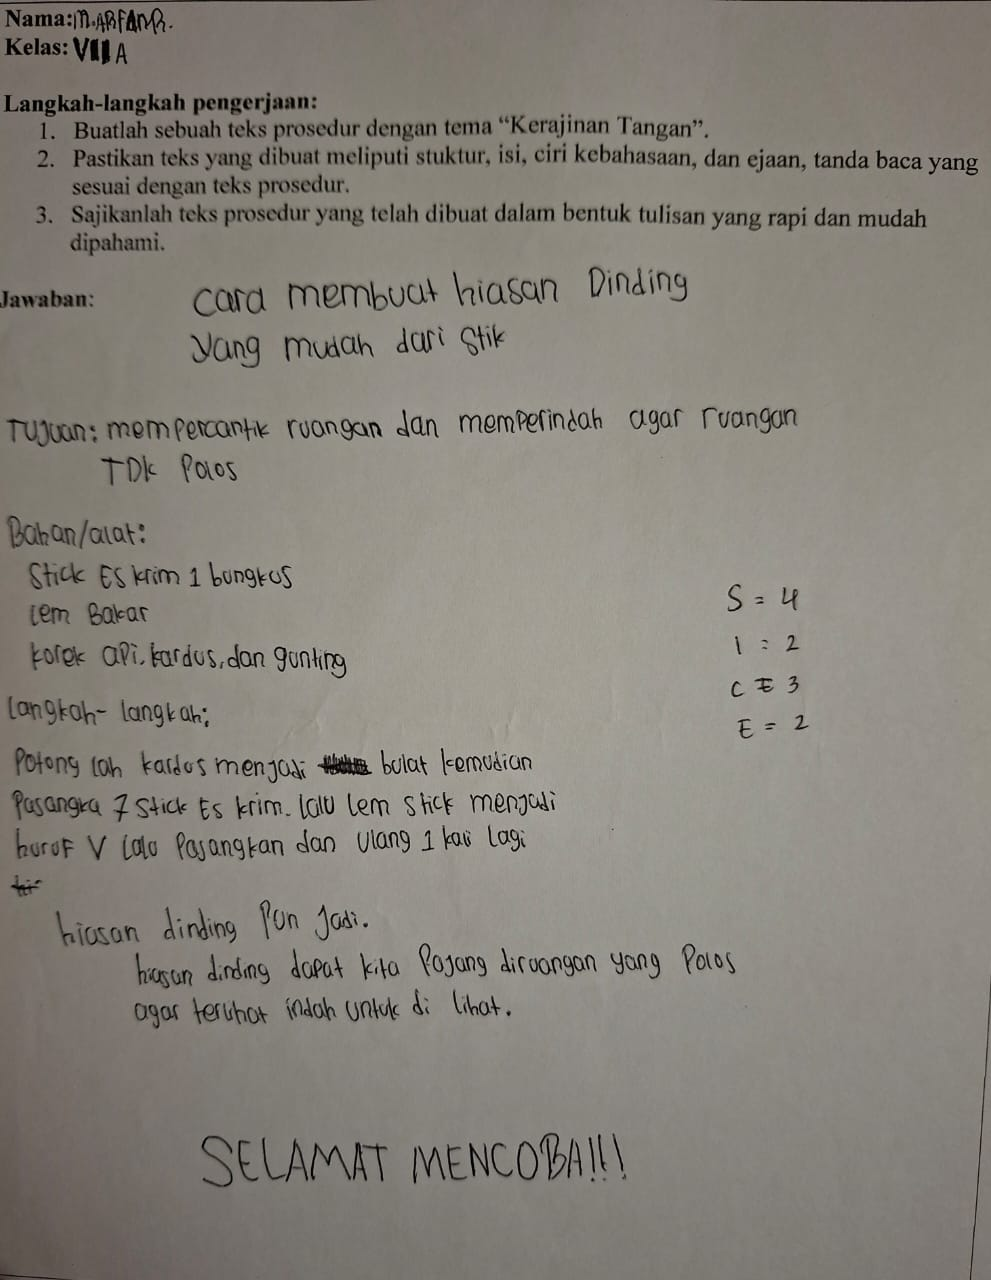 Nama: M. ARFAN R.
Kelas: VIII A
Langkah-langkah pengerjaan:
1. Buatlah sebuah teks prosedur dengan tema “Kerajinan Tangan”.
2. Pastikan teks yang dibuat meliputi stuktur, isi, ciri kebahasaan, dan ejaan, tanda baca yang
sesuai dengan teks prosedur.
3. Sajikanlah teks prosedur yang telah dibuat dalam bentuk tulisan yang rapi dan mudah
dipahami.
Jawaban:
cara membuat hiasan Dinding
yang mudah dari Stik
Tujuan: mempercantik ruangan dan memperindah agar ruangan
TDK Polos
Bahan/alat:
Stick ES krim 1 bungkus
Lem Bakar
korek api, kardus, dan gunting
Langkah-langkah:
Potong lah kardus menjadi bulat kemudian
Pasangka 7 Stick Es krim. lalu lem stick menjadi
huruf V lalu Pasangkan dan ulang 1 kali lagi
hiasan dinding Pun Jadi.
hiasan dinding dapat kita Pajang diruangan yang Polos
agar terlihat indah untuk di lihat.
SELAMAT MENCOBA!!!
S = 4
I = 2
C = 3
E = 2